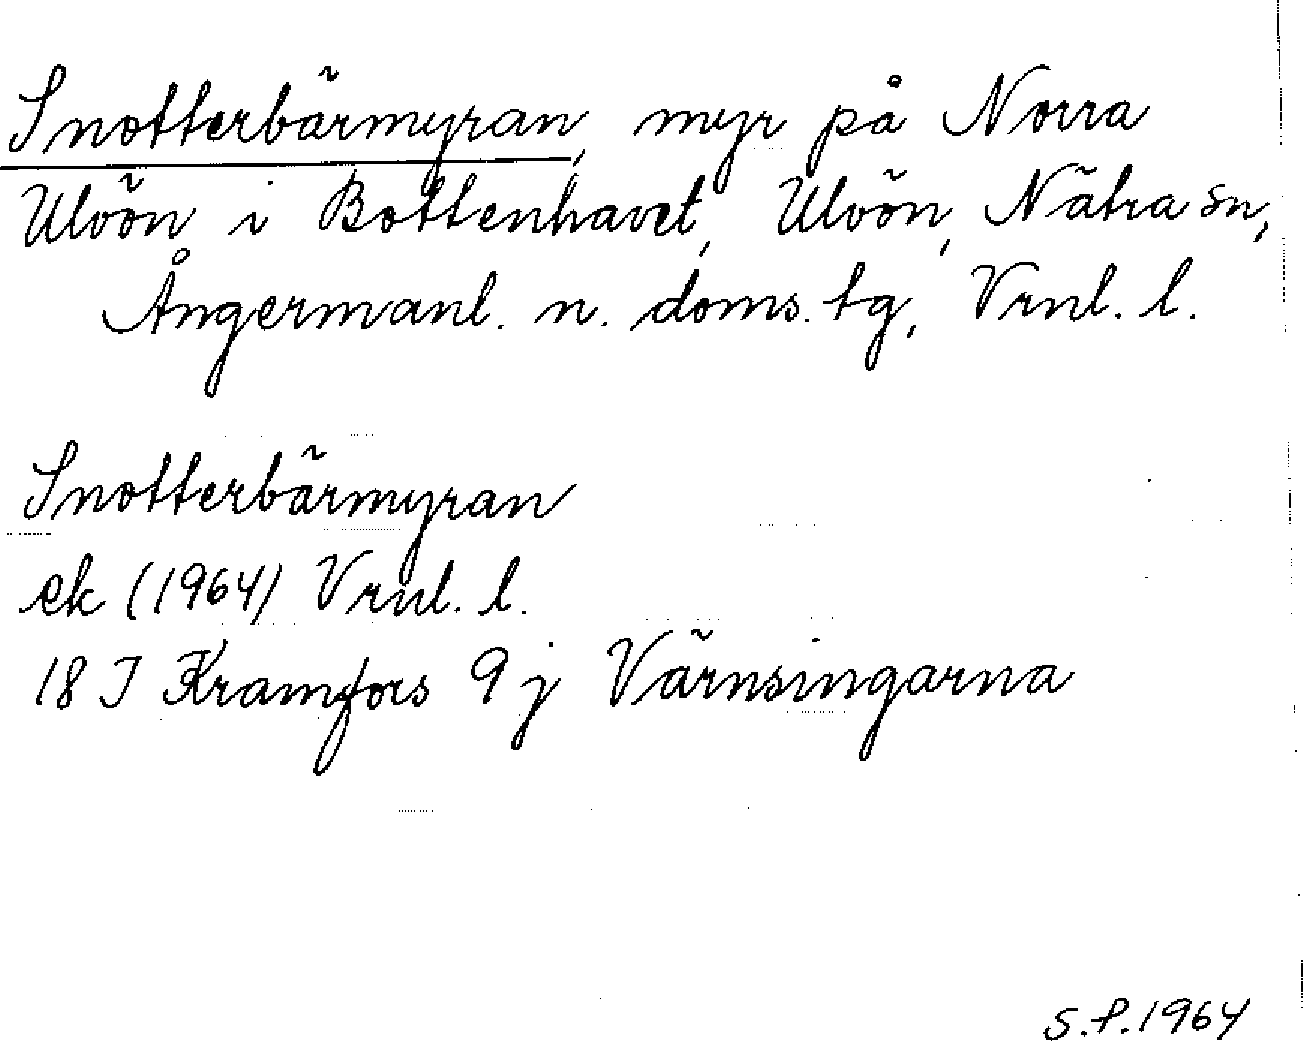 Snotterbärmyran, myr på Norra
Ulvön i Bottenhavet, Ulvön, Nätra sn,
Ångermanl. n. doms. tg, Vrnl. l.
Snotterbärmyran
ek (1964) Vrnl. l.
18 I Kramfors 9 j Värnsingarna
S.P. 1964